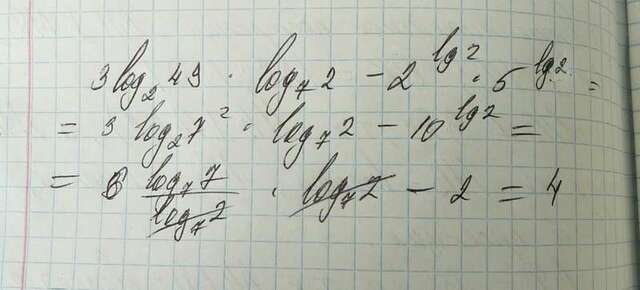 3 log₂ 49 · log₇ 2 − 2^(lg 2) · 5^(lg 2) =
= 3 log₂ 7² · log₇ 2 − 10^(lg 2) =
= 6 (log₇ 7)/(log₇ 2) · log₇ 2 − 2 = 4